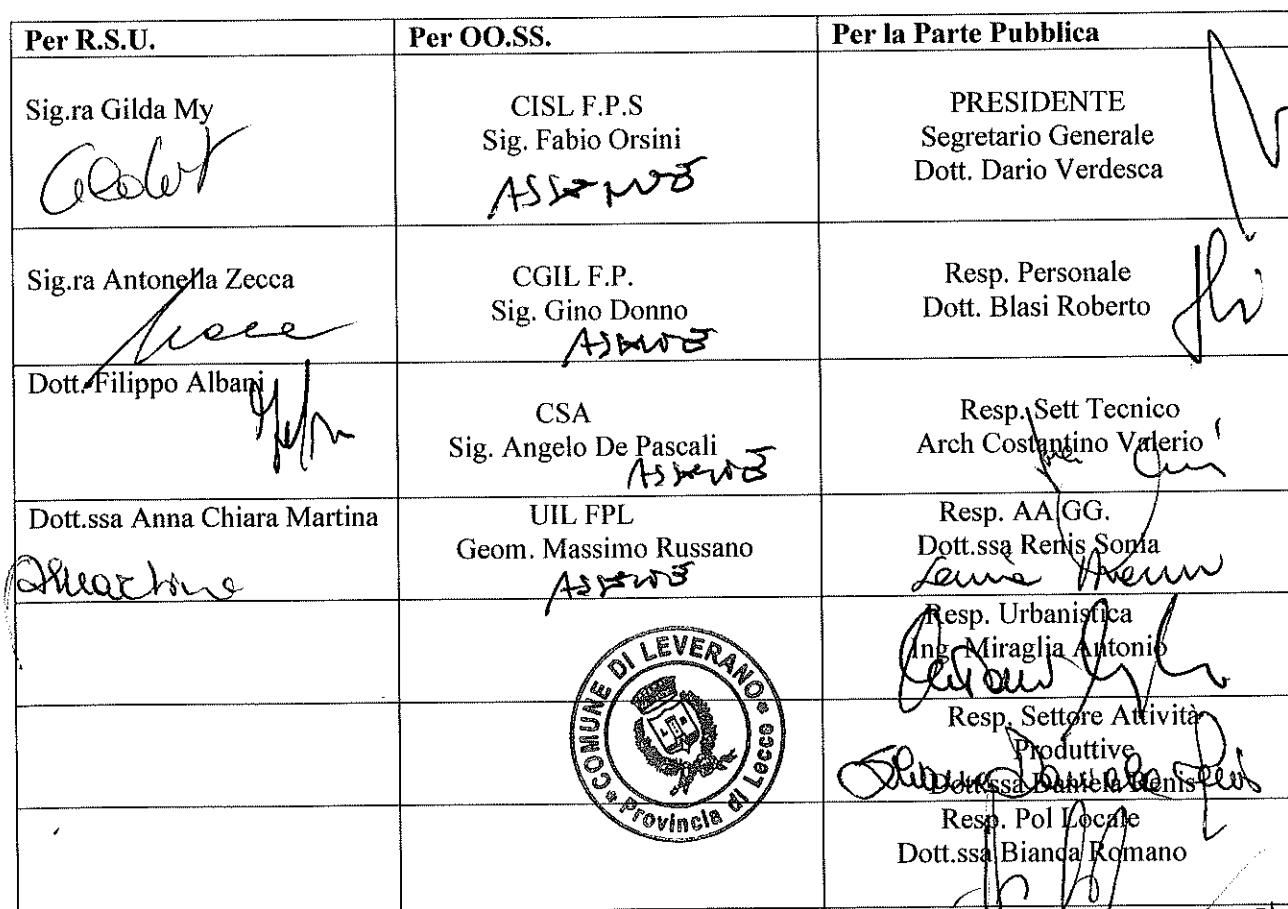 Per R.S.U.
Per OO.SS.
Per la Parte Pubblica
Sig.ra Gilda My
CISL F.P.S
Sig. Fabio Orsini
ASSENTE
PRESIDENTE
Segretario Generale
Dott. Dario Verdesca
Sig.ra Antonella Zecca
CGIL F.P.
Sig. Gino Donno
ASSENTE
Resp. Personale
Dott. Blasi Roberto
Dott. Filippo Albani
CSA
Sig. Angelo De Pascali
ASSENTE
Resp. Sett Tecnico
Arch Costantino Valerio
Dott.ssa Anna Chiara Martina
AMartina
UIL FPL
Geom. Massimo Russano
ASSENTE
Resp. AA GG.
Dott.ssa Renis Sonia
Resp. Urbanistica
Ing. Miraglia Antonio
COMUNE DI LEVERANO
Provincia di Lecce
Resp. Settore Attività
Produttive
Dott.ssa Daniela Renis
Resp. Pol Locale
Dott.ssa Bianca Romano